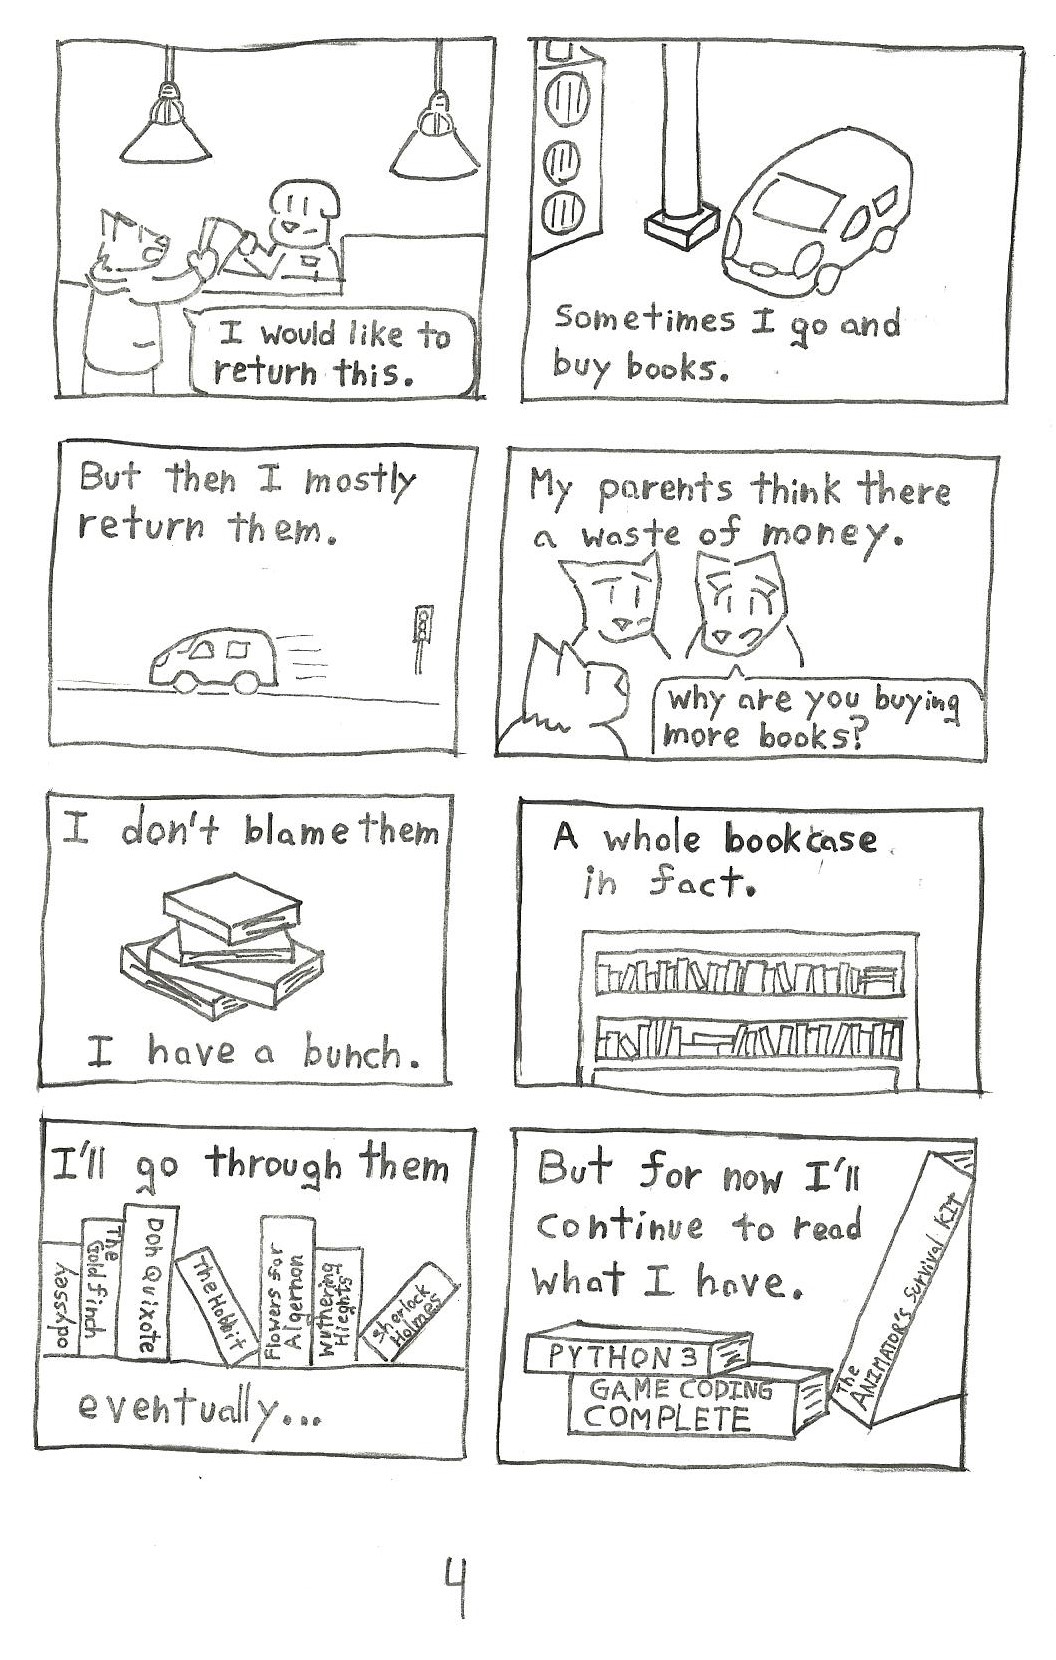 I would like to
return this.
Sometimes I go and
buy books.
But then I mostly
return them.
My parents think there
a waste of money.
why are you buying
more books?
I don't blame them
I have a bunch.
A whole bookcase
in fact.
I'll go through them
odyssey
The
Goldfinch
Don Quixote
The Hobbit
Flowers for
Algernon
Wuthering
Hieghts
Sherlock
Holmes
eventually...
But for now I'll
continue to read
what I have.
PYTHON 3
GAME CODING
COMPLETE
The
ANIMATOR'S Survival KIt
4